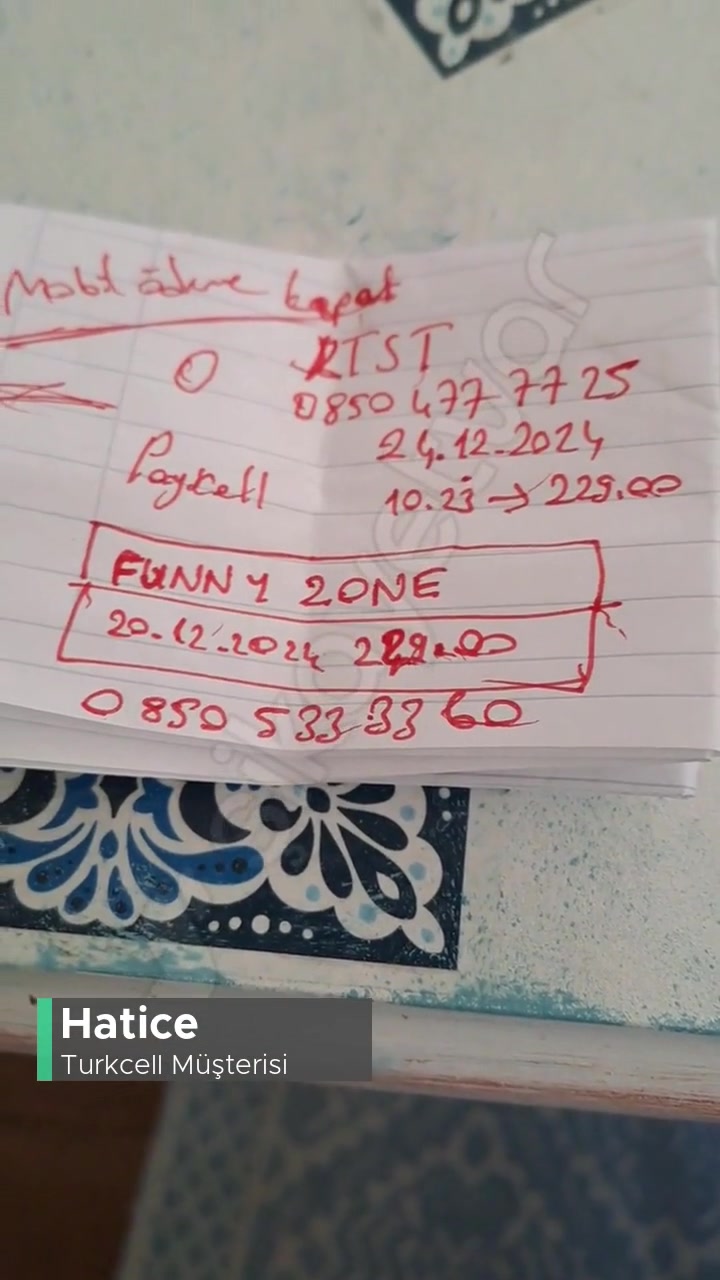 Mobil ödeme kapat
0 RTST
0850 477 77 25
24.12.2024
Paycell 10.23 → 229.00
FUNNY ZONE
20.12.2024 229.00
0850 533 33 60
şikayetvar
Hatice
Turkcell Müşterisi